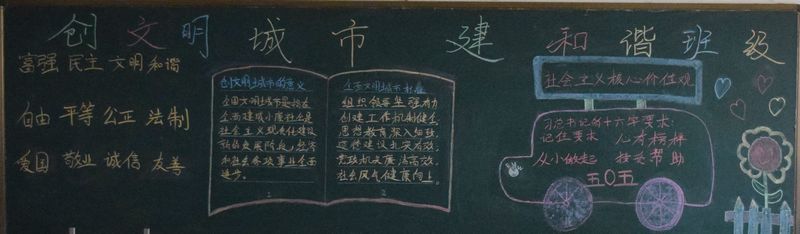 创文明城市 建和谐班级
富强 民主 文明 和谐
自由 平等 公正 法制
爱国 敬业 诚信 友善
创文明城市的意义
全国文明城市是指在
全面建设小康社会是
社会主义现代化建设
新的发展阶段,经济
和社会各项事业全面
进步。
1
全国文明城市标准
组织领导坚强有力
创建工作机制健全
思想教育深入细致,
道德建设扎实有效,
党政机关廉洁高效,
社会风气健康向上。
2
社会主义核心价值观
习总书记的十六字要求:
记住要求 心有榜样
从小做起 接受帮助
五〇五